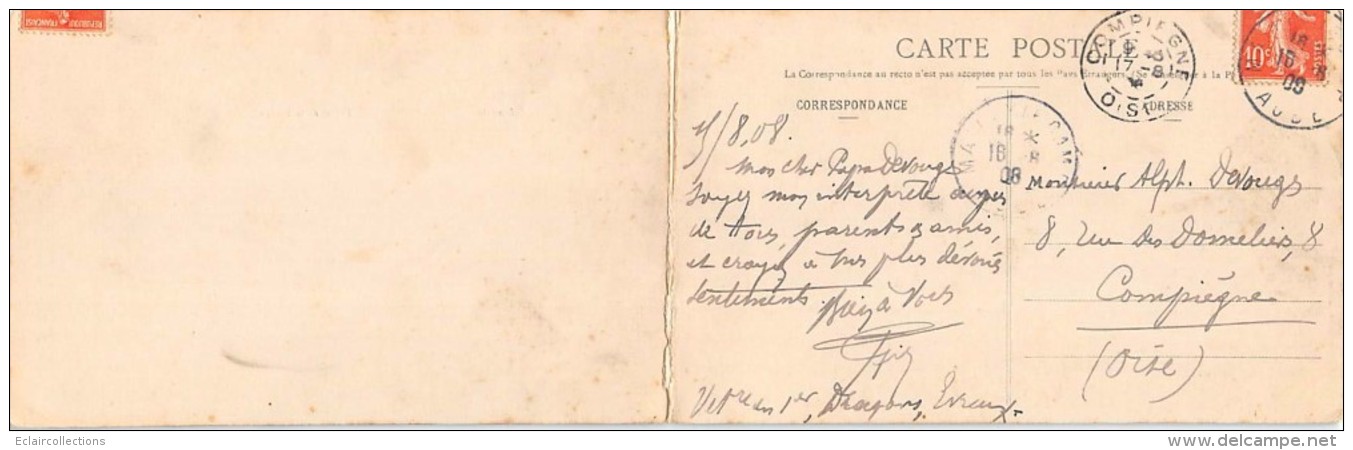 REPUBLIQUE FRANÇAISE
CARTE POSTALE
La Correspondance au recto n'est pas acceptée par tous les Pays Etrangers. (Se à la
CORRESPONDANCE
ADRESSE
COMPIEGNE
17-8
OISE
10c
POSTES
18
16 8
08
AUBE
18 *
16 8
08
/8.08.
Mon cher Papa Devouges
Soyez mon interprète auprès
de tous, parents & amis,
et croyez à mes plus dévoués
sentiments. Bien à Vous
Vétre au 1er Dragons, Evreux
Monsieur Alph. Devouges
8, rue des Domeliers, 8
Compiègne
(Oise)
Eclaircollections
www.delcampe.net